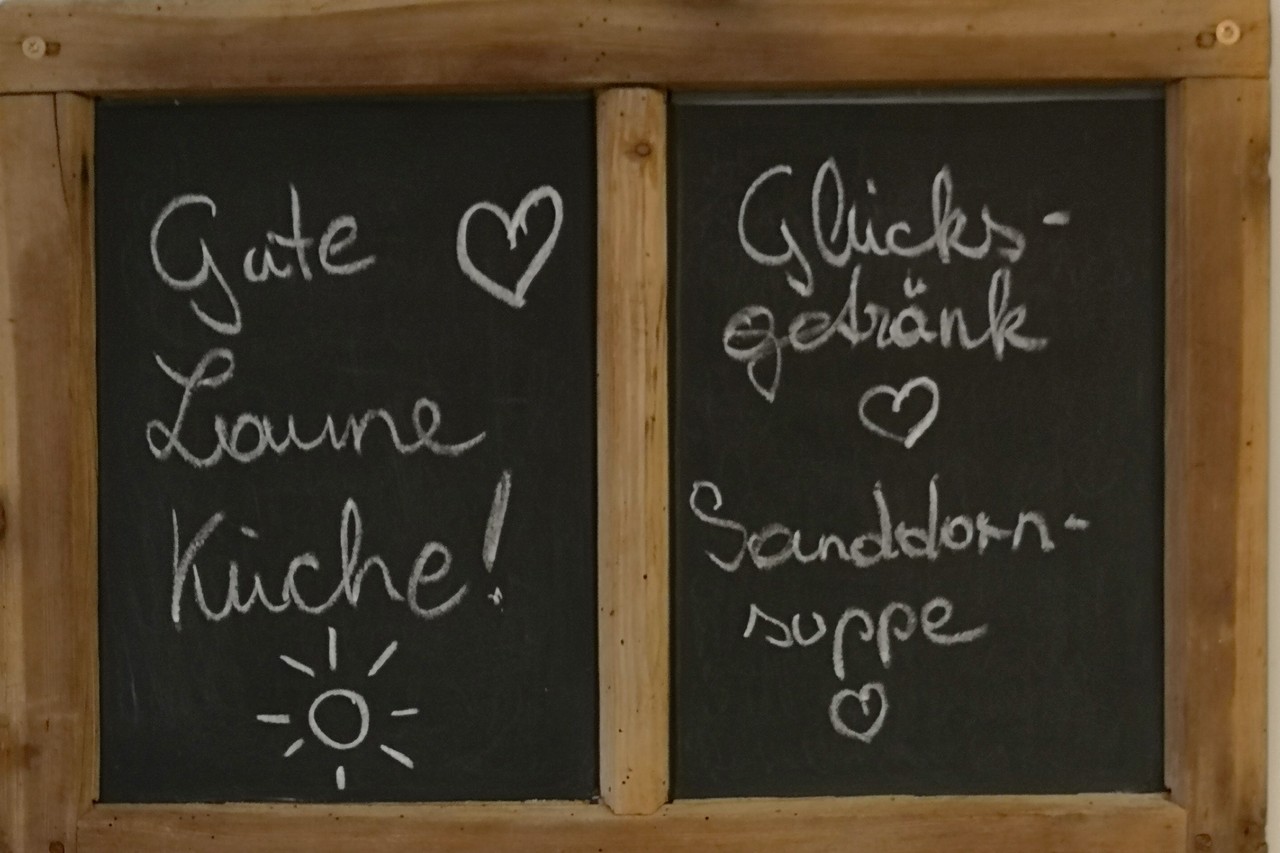 Gute
Laune
Küche!
Glücks-
getränk
Sanddorn-
suppe